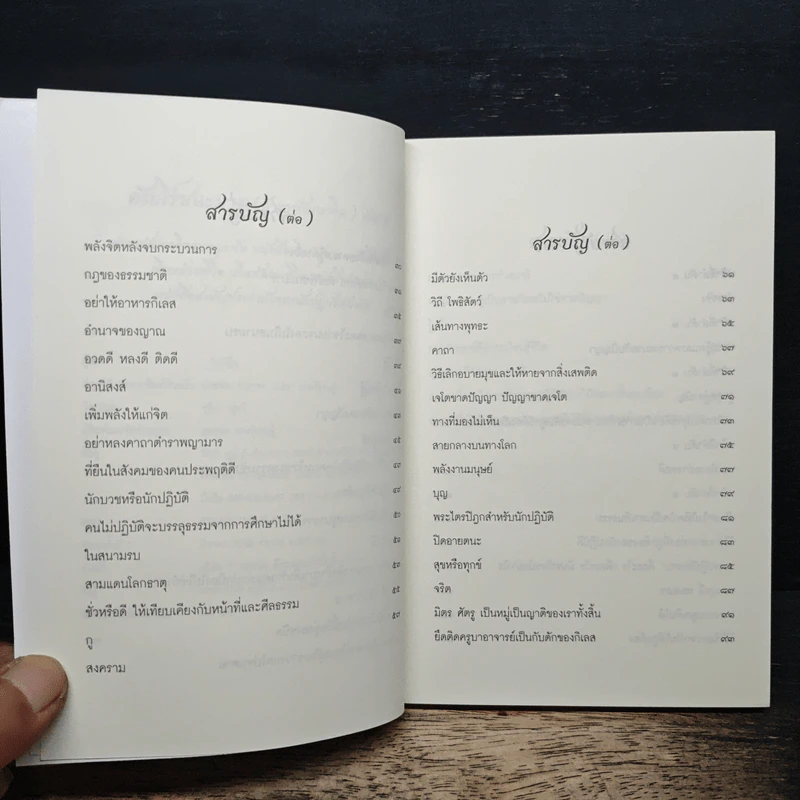 สารบัญ (ต่อ)
พลังจิตหลังจบกระบวนการ
กฎของธรรมชาติ
อย่าให้อาหารกิเลส ๓๕
อำนาจของญาณ
อวดดี หลงดี ติดดี
อานิสงส์
เพิ่มพลังให้แก่จิต
อย่าหลงคาถาตำราพญามาร ๔๕
ที่ยืนในสังคมของคนประพฤติดี
นักบวชหรือนักปฏิบัติ ๔๙
คนไม่ปฏิบัติจะบรรลุธรรมจากการศึกษาไม่ได้
ในสนามรบ
สามแดนโลกธาตุ ๕๕
ชั่วหรือดี ให้เทียบเคียงกับหน้าที่และศีลธรรม
กู
สงคราม
สารบัญ (ต่อ)
มีตัวยังเห็นตัว ๖๑
วิถี โพธิสัตว์ ๖๓
เส้นทางพุทธะ ๖๕
คาถา ๖๗
วิธีเลิกอบายมุขและให้หายจากสิ่งเสพติด ๖๙
เจโตขาดปัญญา ปัญญาขาดเจโต ๗๑
ทางที่มองไม่เห็น ๗๓
สายกลางบนทางโลก ๗๕
พลังงานมนุษย์ ๗๗
บุญ ๗๙
พระไตรปิฎกสำหรับนักปฏิบัติ ๘๑
ปิดอายตนะ ๘๓
สุขหรือทุกข์ ๘๕
จริต ๘๗
มิตร ศัตรู เป็นหมู่เป็นญาติของเราทั้งสิ้น ๙๑
ยึดติดครูบาอาจารย์เป็นกับดักของกิเลส ๙๓